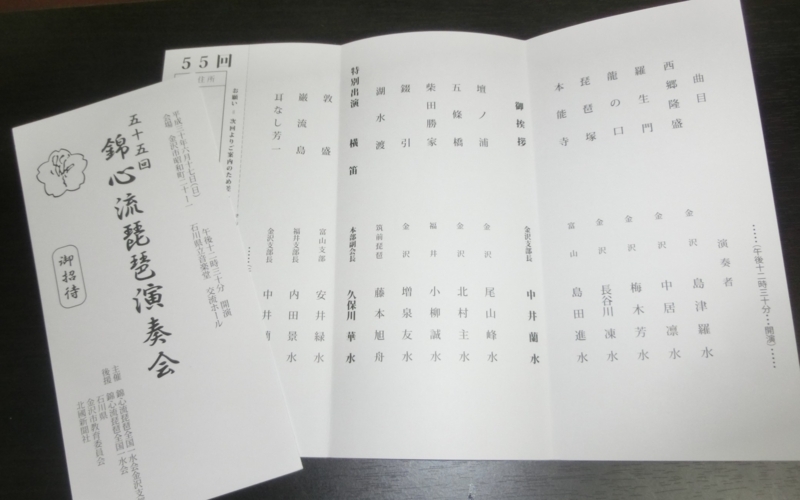 五十五回
錦心流琵琶演奏会
御招待
平成三十年六月十七日(日) 午後十二時三十分 開演
会場 金沢市昭和町二十ー一 石川県立音楽堂 交流ホール
主催 錦心流琵琶全国一水会金沢支
後援 錦心流琵琶全国一水会
石川県
金沢市教育委員会
北國新聞社
(午後十二時三十分…開演)
曲目 演奏者
西郷隆盛 金沢 島津羅水
羅生門 金沢 中居凛水
龍の口 金沢 梅木芳水
琵琶塚 金沢 長谷川凍水
本能寺 富山 島田進水
御挨拶 金沢支部長 中井蘭水
壇ノ浦 金沢 尾山峰水
五條橋 金沢 北村主水
柴田勝家 福井 小柳誠水
錣引 金沢 増泉友水
湖水渡 筑前琵琶 藤本旭舟
特別出演 横笛 本部副会長 久保川華水
敦盛 富山支部 安井緑水
巌流島 福井支部長 内田景水
耳なし芳一 金沢支部長 中井
お願い：次回よりご案内のためを
55回
住所